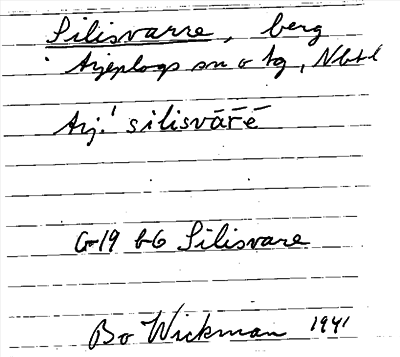 Silisvarre, berg
Arjeplogs sn o tg, Nbtl
Arj. silisvārē
G-19 b6 Silisvare
Bo Wickman 1941